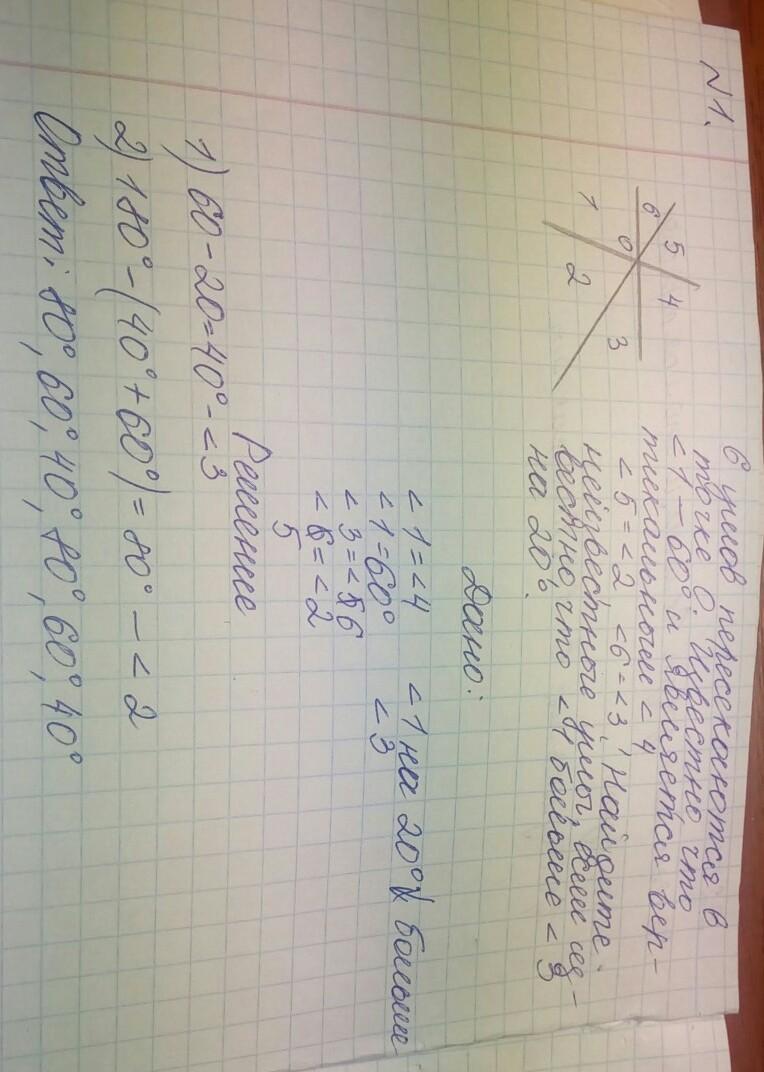 N1.
6 5 4
1 0
2 3
6 углов пересекаются в
точке O. Известно что
<1 – 60° и является вер-
тикальным < 4
<5 = <2 <6 = <3, Найдите
неизвестные углы, если из-
вестно, что <1 больше < 3
на 20°.
Дано:
<1 = <4 <1 на 20° больше
<1 = 60° <3
<3 = <6
<5 = <2
Решение
1) 60 - 20 = 40° - <3
2) 180° - (40° + 60°) = 80° - < 2
Ответ: 80°, 60°, 40°, 80°, 60°, 40°